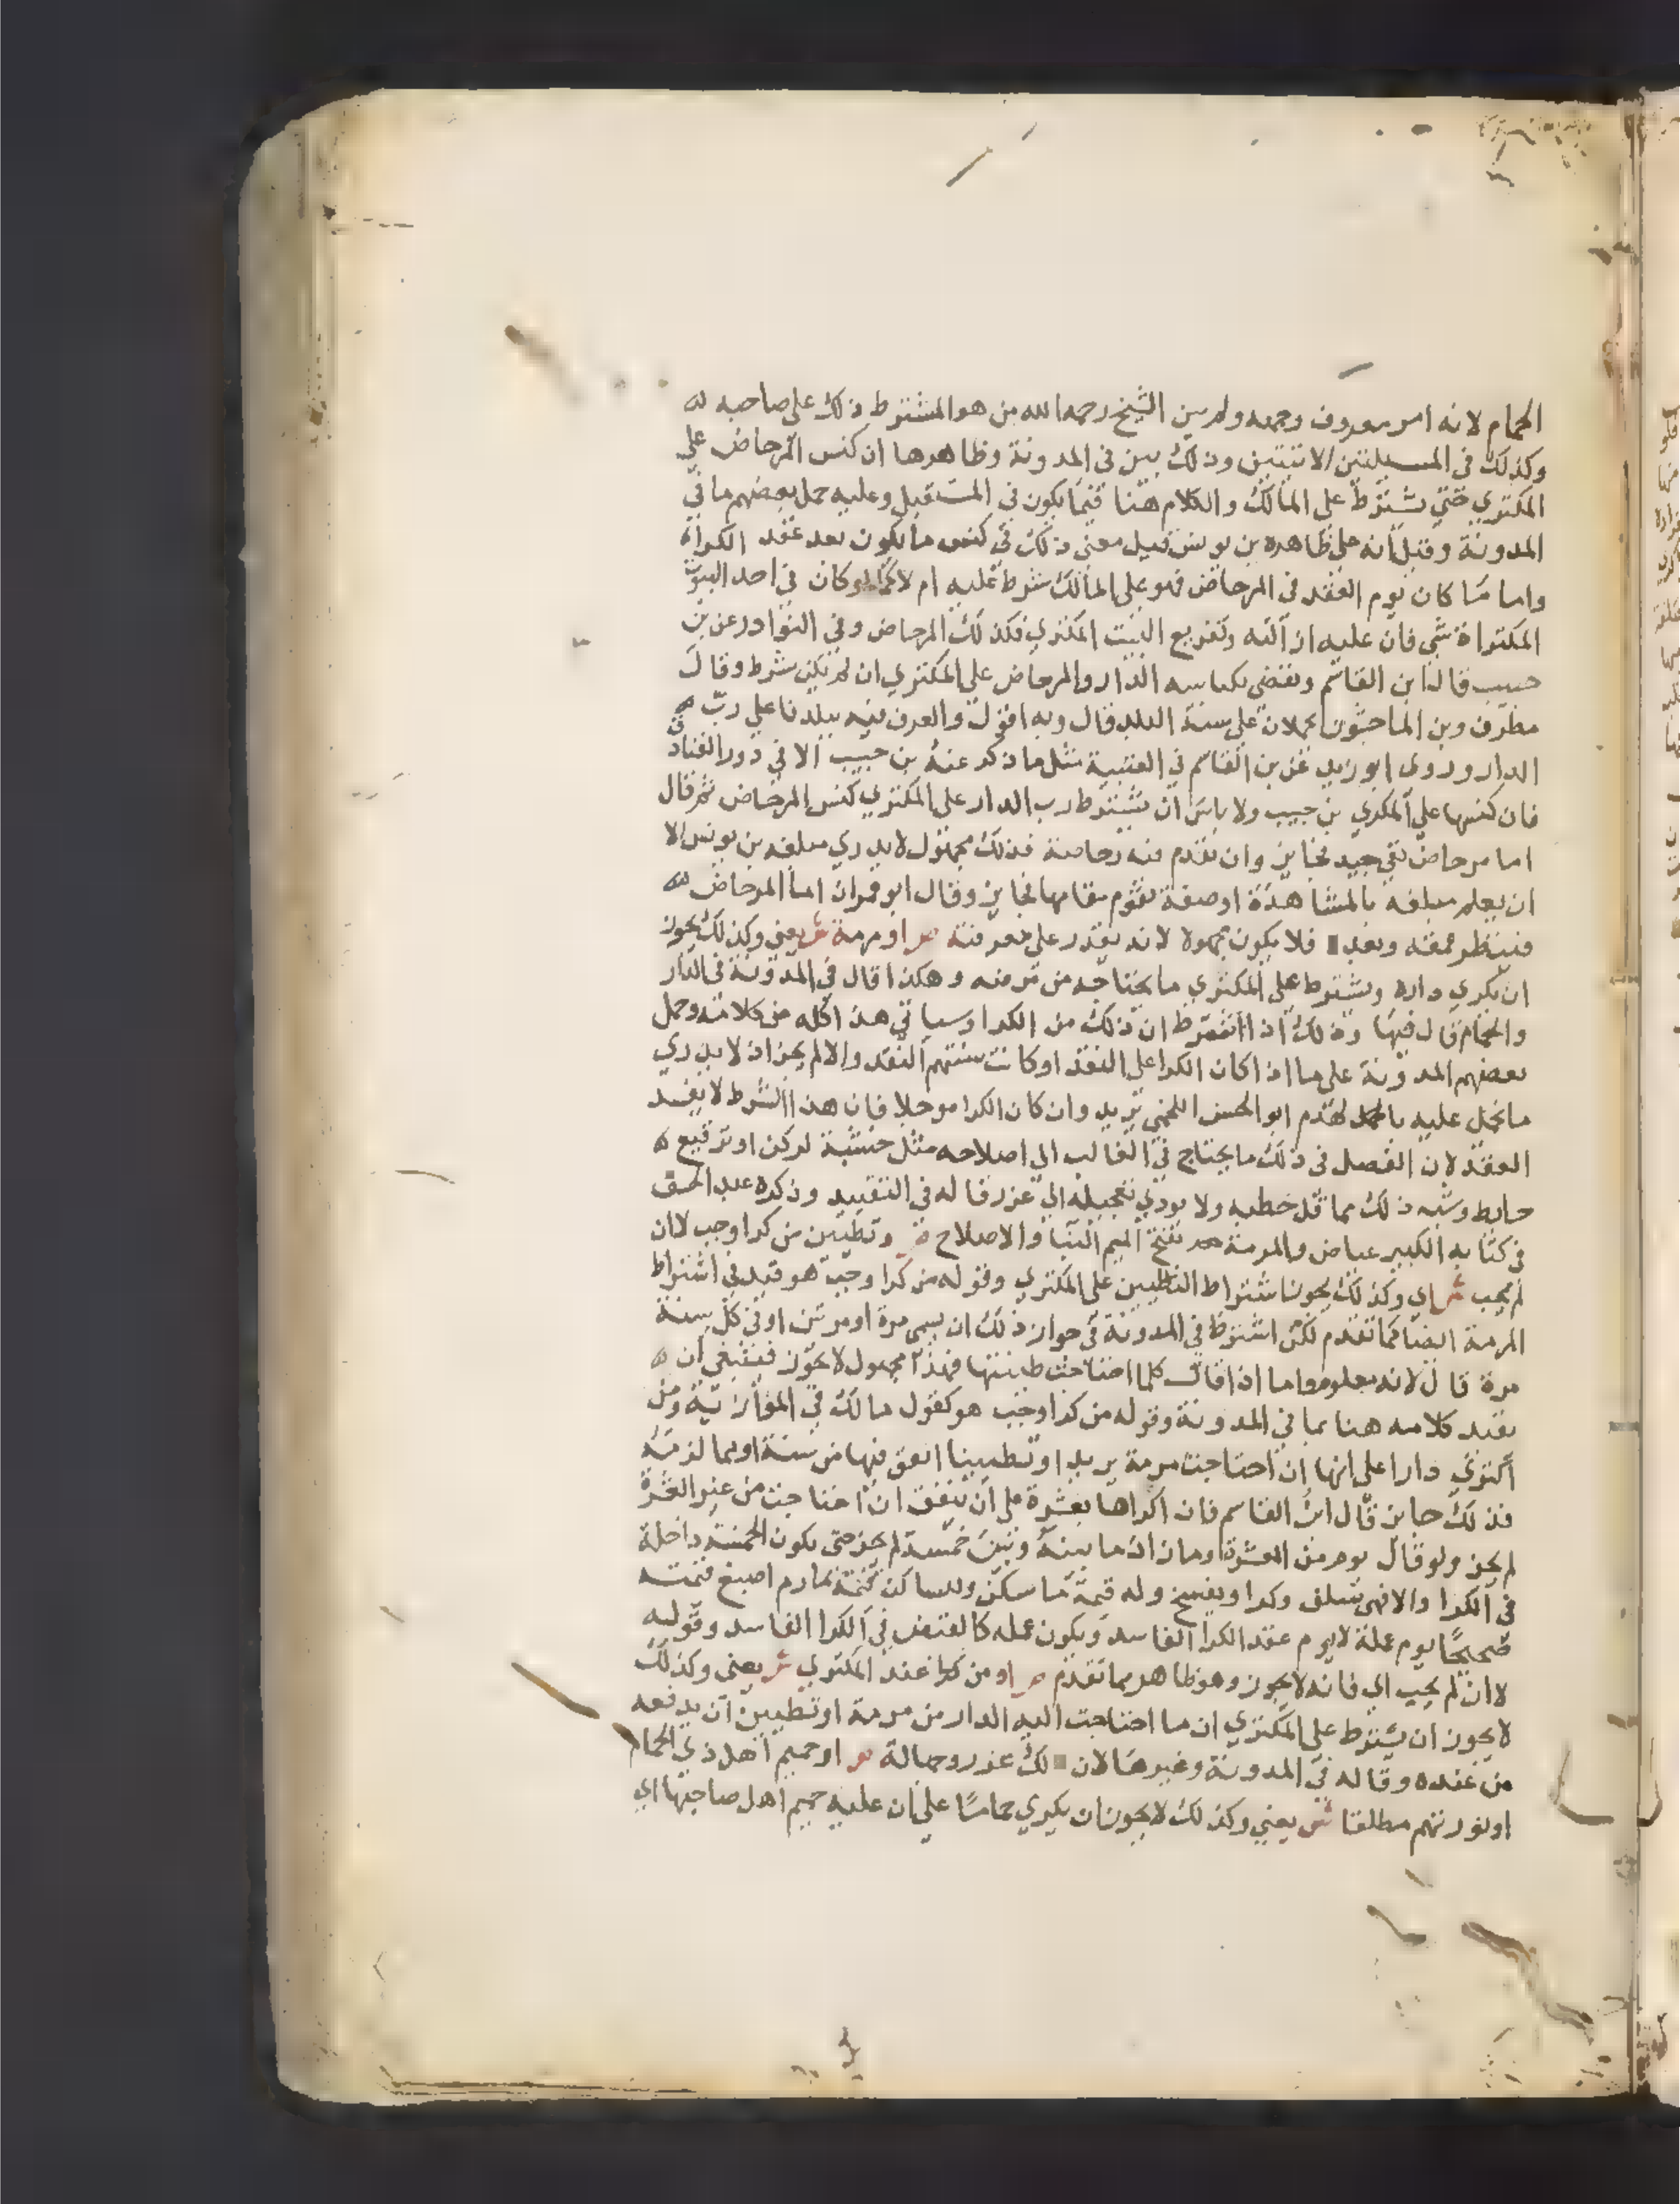 الحمام لانه امر معروف وجهه ولم يبين الشيخ رحمه الله من هو المشترط ذلك على صاحبه
وكذلك في المسيلتين الاتيتين وذلك بين في المدونة وظاهرها ان كنس المرحاض على
المكتري حتى يشترط على المالك والكلام هنا فيما يكون في المستقبل وعليه حمل بعضهم ما في
المدونة وقيل انه على ظاهره بن يونس قيل معنى ذلك في كنس ما يكون بعد عقد الكراء
واما ما كان يوم العقد في المرحاض فهو على المالك شرط عليه ام لا كما لو كان في احد البيوت
المكتراة شي فان عليه ازالته وتفريغ البيت المكتري فكذلك المرحاض وفي النوادر عن بن
حبيب قال ابن القاسم ويقضى بكناسة الدار والمرحاض على المكتري ان لم يكن شرط وقال
مطرف وبن الماجشون يحملان على سنة البلد قال وبه اقول والعرف فيه ببلدنا على رب
الدار وروى ابو زيد عن بن القاسم في العتبية مثل ما ذكر عنه بن حبيب الا في دور الفنادق
فان كنسها على المكري بن حبيب ولا باس ان يشترط رب الدار على المكتري كنس المرحاض ثم قال
اما مرحاض نقي جيد فجايز وان تقدم فيه رحاضة فذلك مجهول لا يدري مبلغه بن يونس الا
ان يعلم مبلغه بالمشاهدة او صفة تقوم مقامها فجايز وقال ابو عمران اما المرحاض
فينظر عمقه فلا يكون مجهولا لانه يقدر على معرفته ص او مرمة ش يعني وكذلك يجوز
ان يكري داره ويشترط على المكتري ما يحتاجه من مرمة وهكذا قال في المدونة في الدار
والحمام قال فيها وذلك اذا اشترط ان ذلك من الكرا وسياتي هذا كله من كلامه وحمل
بعضهم المدونة على ما اذا كان الكرا على النقد او كانت سنتهم النقد والا لم يجز اذ لا يدري
ما يحل عليه بالهدم ابو الحسن اللخمي يريد وان كان الكرا موجلا فان هذا الشرط لا يفسد
العقد لان القصد في ذلك ما يحتاج في الغالب الى اصلاحه مثل خشبة لركن او ترقيع
حايط وشبه ذلك مما قل خطبه ولا يودي تعجيله الى غرر قاله في التقييد وذكره عبد الحق
في كتابه الكبير عياض والمرمة بفتح الميم البنا والاصلاح ص وتطيين من كرا وجب لا ان
لم يجب ش اي وكذلك يجوز اشتراط التطيين على المكتري وقوله من كرا وجب هو قيد في اشتراط
المرمة ايضا كما تقدم لكن اشترط في المدونة في جواز ذلك ان يسمي مرة او مرتين او في كل سنة
مرة قال لانه معلوم واما اذا قال كلما احتاجت طينتها فهذا مجهول لا يجوز فينبغي ان
يقيد كلامه هنا بما في المدونة وقوله من كرا وجب هو كقول مالك في الموازية ومن
اكترى دارا على انها ان احتاجت مرمة يريد او تطيينا انفق فيها من سنة او بما لزمه
فذلك جايز قال ابن القاسم فان اكراها بعشرة على ان ينفق ان احتاجت من غير العشرة
لم يجز ولو قال يرم من العشرة وما زاد ما بينه وبين خمسة لم يجز حتى يكون الخمسة داخلة
في الكرا والا فهي سلف وكرا ويفسخ وله قيمة ما سكن وللساكن قيمة ما رم اصبغ قيمته
صحيحا يوم عمله لا يوم عقد الكرا الفاسد ويكون عمله كالقبض في الكرا الفاسد وقوله
لا ان لم يجب اي فانه لا يجوز وهو ظاهر مما تقدم ص او من عند المكتري ش يعني وكذلك
لا يجوز ان يشترط على المكتري ان ما احتاجت اليه الدار من مرمة او تطيين ان يدفعه
من عنده وقاله في المدونة وغيرها لان ذلك غرر وجهالة ص او حميم اهل ذي الحمام
او نورتهم مطلقا ش يعني وكذلك لا يجوز ان يكري حماما على ان عليه حميم اهل صاحبها اي